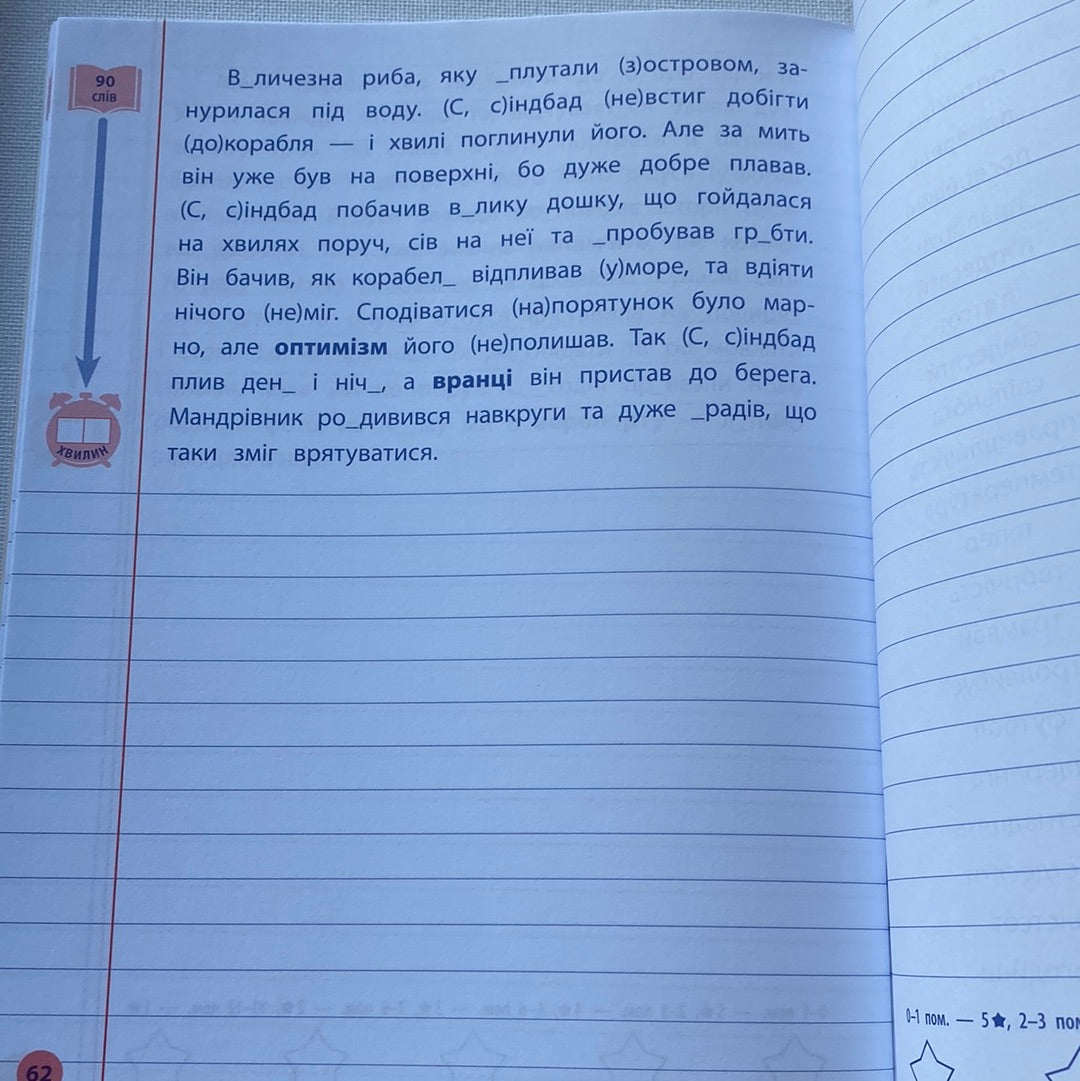 90
слів
В_личезна риба, яку _плутали (з)островом, за-
нурилася під воду. (С, с)індбад (не)встиг добігти
(до)корабля — і хвилі поглинули його. Але за мить
він уже був на поверхні, бо дуже добре плавав.
(С, с)індбад побачив в_лику дошку, що гойдалася
на хвилях поруч, сів на неї та _пробував гр_бти.
Він бачив, як корабел_ відпливав (у)море, та вдіяти
нічого (не)міг. Сподіватися (на)порятунок було мар-
но, але оптимізм його (не)полишав. Так (С, с)індбад
плив ден_ і ніч_, а вранці він пристав до берега.
Мандрівник ро_дивився навкруги та дуже _радів, що
таки зміг врятуватися.
ХВИЛИН
62
0–1 пом. — 5★, 2–3